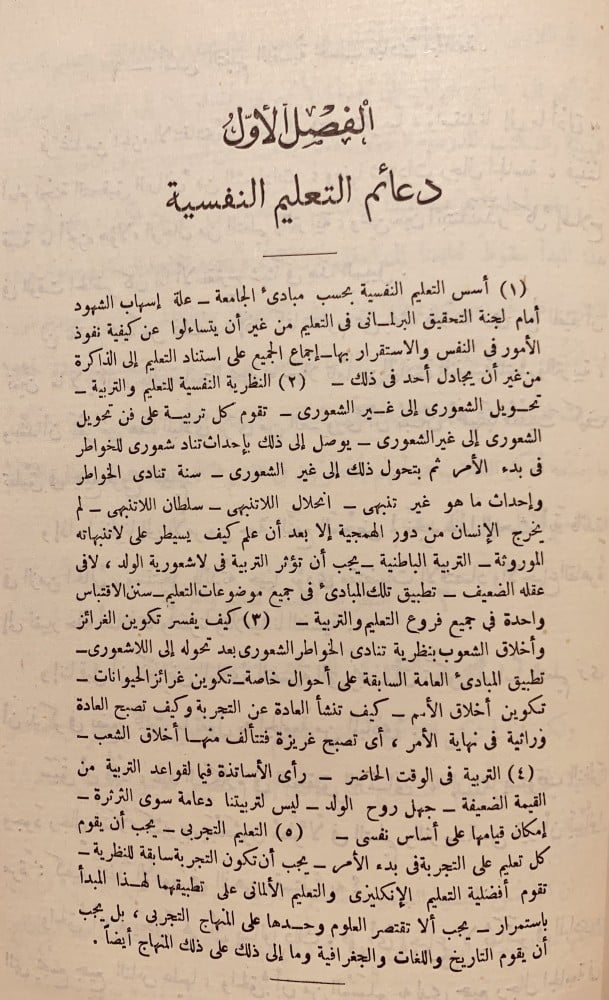 الفصل الأول
دعائم التعليم النفسية
(١) أسس التعليم النفسية بحسب مبادئ الجامعة ــ علة إسهاب الشهود
أمام لجنة التحقيق البرلمانى فى التعليم من غير أن يتساءلوا عن كيفية نفوذ
الأمور فى النفس والاستقرار بها ــ إجماع الجميع على استناد التعليم إلى الذاكرة
من غير أن يجادل أحد فى ذلك ــ (٢) النظرية النفسية للتعليم والتربية ــ
تحويل الشعورى إلى غير الشعورى ــ تقوم كل تربية على فن تحويل
الشعورى إلى غير الشعورى ــ يوصل إلى ذلك بإحداث تناد شعورى للخواطر
فى بدء الأمر ثم بتحول ذلك إلى غير الشعورى ــ سنة تنادى الخواطر
وإحداث ما هو غير تنبهى ــ انحلال اللاتنبهى ــ سلطان اللاتنبهى ــ لم
يخرج الإنسان من دور الهمجية إلا بعد أن علم كيف يسيطر على لاتنبهاته
الموروثة ــ التربية الباطنية ــ يجب أن تؤثر التربية فى لاشعورية الولد ، لافى
عقله الضعيف ــ تطبيق تلك المبادئ فى جميع موضوعات التعليم ــ سنن الاقتباس
واحدة فى جميع فروع التعليم والتربية ــ (٣) كيف يفسر تكوين الغرائز
وأخلاق الشعوب بنظرية تنادى الخواطر الشعورى بعد تحوله إلى اللاشعورى ــ
تطبيق المبادئ العامة السابقة على أحوال خاصة ــ تكوين غرائز الحيوانات ــ
تكوين أخلاق الأمم ــ كيف تنشأ العادة عن التجربة وكيف تصبح العادة
وراثية فى نهاية الأمر ، أى تصبح غريزة فتتألف منها أخلاق الشعب ــ
(٤) التربية فى الوقت الحاضر ــ رأى الأساتذة فيما لقواعد التربية من
القيمة الضعيفة ــ جهل روح الولد ــ ليس لتربيتنا دعامة سوى الثرثرة ــ
إمكان قيامها على أساس نفسى ــ (٥) التعليم التجربى ــ يجب أن يقوم
كل تعليم على التجربة فى بدء الأمر ــ يجب أن تكون التجربة سابقة للنظرية ــ
تقوم أفضلية التعليم الإنكليزى والتعليم الألمانى على تطبيقهما لهذا المبدأ
باستمرار ــ يجب ألا تقتصر العلوم وحدها على المنهاج التجربى ، بل يجب
أن يقوم التاريخ واللغات والجغرافية وما إلى ذلك على ذلك المنهاج أيضاً .